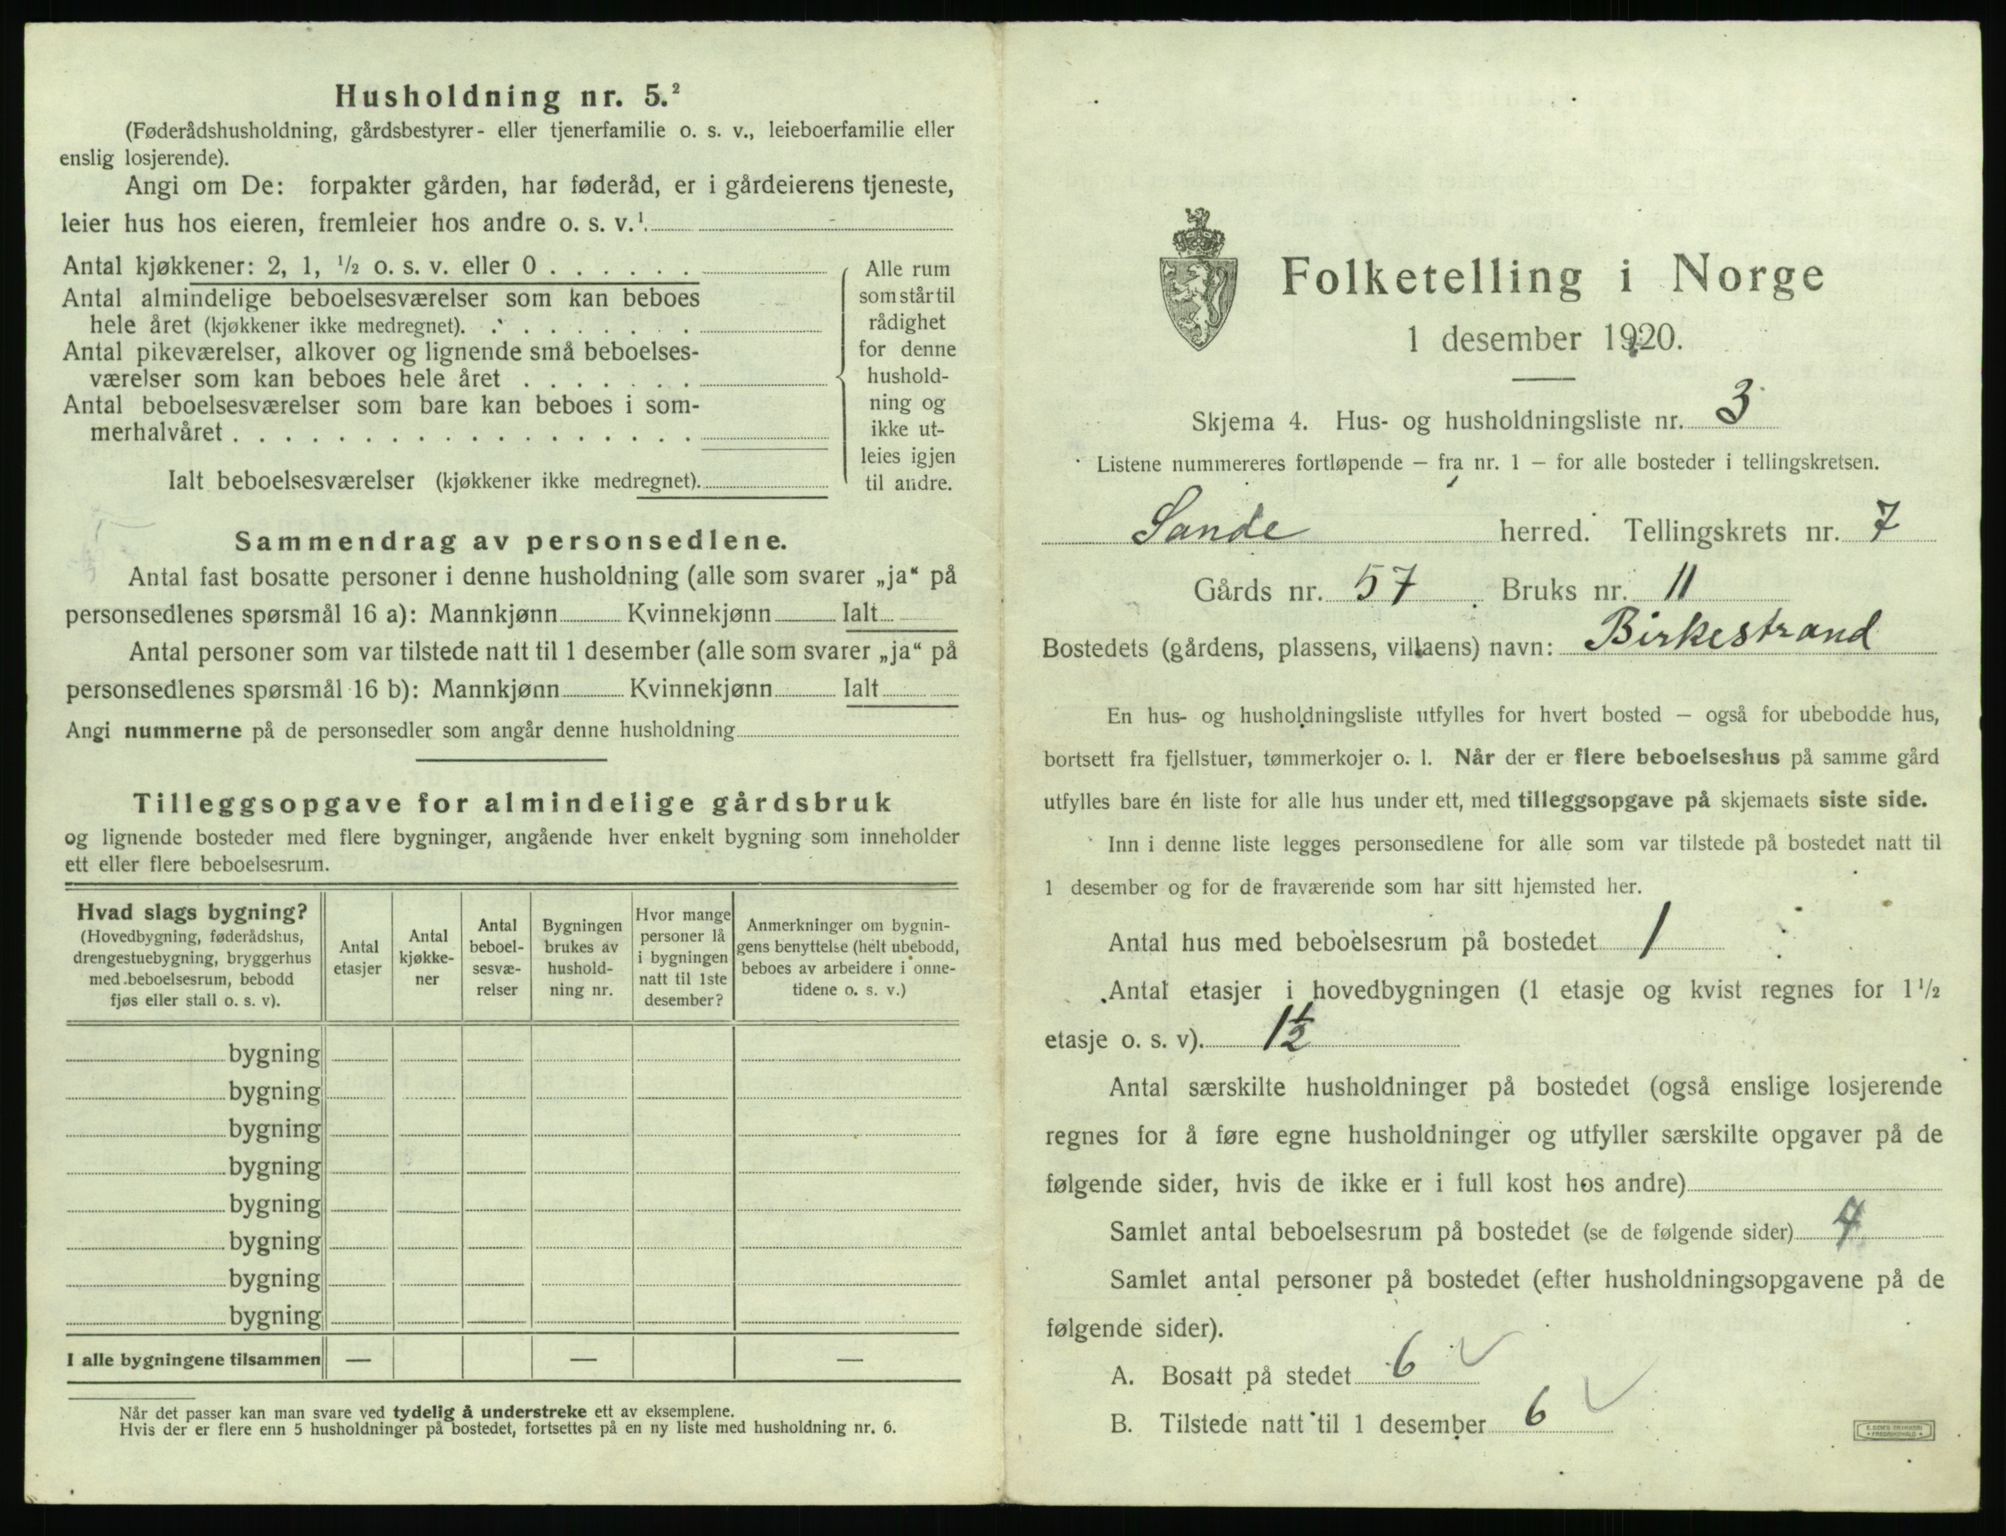 Husholdning nr. 5.²
(Føderådshusholdning, gårdsbestyrer- eller tjenerfamilie o. s. v., leieboerfamilie eller
enslig losjerende).
Angi om De: forpakter gården, har føderåd, er i gårdeierens tjeneste,
leier hus hos eieren, fremleier hos andre o. s. v.¹
Antal kjøkkener: 2, 1, ½ o. s. v. eller 0 . . . . . .
Antal almindelige beboelsesværelser som kan beboes
hele året (kjøkkener ikke medregnet). . . . . . . . .
Antal pikeværelser, alkover og lignende små beboelses-
værelser som kan beboes hele året . . . . . . .
Antal beboelsesværelser som bare kan beboes i som-
merhalvåret . . . . . . . . . . . . . . . . . .
Ialt beboelsesværelser (kjøkkener ikke medregnet).
Alle rum
som står til
rådighet
for denne
hushold-
ning og
ikke ut-
leies igjen
til andre.
Sammendrag av personsedlene.
Antal fast bosatte personer i denne husholdning (alle som svarer „ja“ på
personsedlenes spørsmål 16 a): Mannkjønn Kvinnekjønn Ialt
Antal personer som var tilstede natt til 1 desember (alle som svarer „ja“ på
personsedlenes spørsmål 16 b): Mannkjønn Kvinnekjønn Ialt
Angi nummerne på de personsedler som angår denne husholdning
Tilleggsopgave for almindelige gårdsbruk
og lignende bosteder med flere bygninger, angående hver enkelt bygning som inneholder
ett eller flere beboelsesrum.
Hvad slags bygning?
(Hovedbygning, føderådshus,
drengestuebygning, bryggerhus
med beboelsesrum, bebodd
fjøs eller stall o. s. v).
Antal
etasjer
Antal
kjøkke-
ner
Antal
beboel-
sesvæ-
relser
Bygningen
brukes av
hushold-
ning nr.
Hvor mange
personer lå
i bygningen
natt til 1ste
desember?
Anmerkninger om bygnin-
gens benyttelse (helt ubebodd,
beboes av arbeidere i onne-
tidene o. s. v.)
bygning
bygning
bygning
bygning
bygning
bygning
bygning
bygning
I alle bygningene tilsammen — — —
Når det passer kan man svare ved tydelig å understreke ett av eksemplene.
Hvis der er flere enn 5 husholdninger på bostedet, fortsettes på en ny liste med husholdning nr. 6.
Folketelling i Norge
1 desember 1920.
Skjema 4. Hus- og husholdningsliste nr. 3
Listene nummereres fortløpende — fra nr. 1 — for alle bosteder i tellingskretsen.
Sande herred. Tellingskrets nr. 7
Gårds nr. 57 Bruks nr. 11
Bostedets (gårdens, plassens, villaens) navn: Birkestrand
En hus- og husholdningsliste utfylles for hvert bosted — også for ubebodde hus,
bortsett fra fjellstuer, tømmerkojer o. l. Når der er flere beboelseshus på samme gård
utfylles bare én liste for alle hus under ett, med tilleggsopgave på skjemaets siste side.
Inn i denne liste legges personsedlene for alle som var tilstede på bostedet natt til
1 desember og for de fraværende som har sitt hjemsted her.
Antal hus med beboelsesrum på bostedet 1
Antal etasjer i hovedbygningen (1 etasje og kvist regnes for 1½
etasje o. s. v). 1½
Antal særskilte husholdninger på bostedet (også enslige losjerende
regnes for å føre egne husholdninger og utfyller særskilte opgaver på de
følgende sider, hvis de ikke er i full kost hos andre)
Samlet antal beboelsesrum på bostedet (se de følgende sider)
Samlet antal personer på bostedet (efter husholdningsopgavene på de
følgende sider).
A. Bosatt på stedet 6
B. Tilstede natt til 1 desember 6